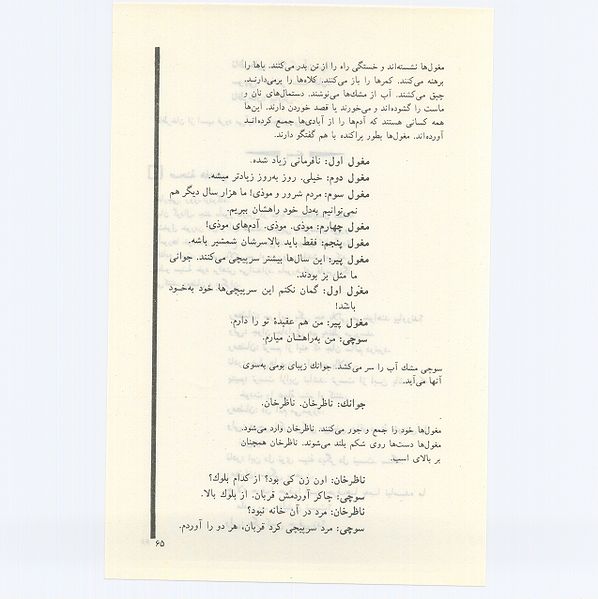 مغول‌ها نشسته‌اند و خستگی راه را از تن بدر می‌کنند. پاها را
برهنه می‌کنند. کمرها را باز می‌کنند. کلاه‌ها را برمی‌دارند.
چپق می‌کشند. آب از مشك‌ها می‌نوشند. دستمال‌های نان و
ماست را گشوده‌اند و می‌خورند یا قصد خوردن دارند. این‌ها
همه کسانی هستند که آدم‌ها را از آبادی‌ها جمع کرده‌اند
آورده‌اند. مغول‌ها بطور پراکنده با هم گفتگو دارند.
مغول اول: نافرمانی زیاد شده.
مغول دوم: خیلی. روز به‌روز زیادتر میشه.
مغول سوم: مردم شرور و موذی! ما هزار سال دیگر هم
نمی‌توانیم به‌دل خود راهشان ببریم.
مغول چهارم: موذی. موذی. آدم‌های موذی!
مغول پنجم: فقط باید بالاسرشان شمشیر باشه.
مغول پیر: این سال‌ها بیشتر سرپیچی می‌کنند. جوانی
ما مثل بز بودند.
مغول اول: گمان نکنم این سرپیچی‌ها خود به‌خود
باشد!
مغول پیر: من هم عقیدهٔ تو را دارم.
سوچی: من به‌راهشان میارم.
سوچی مشك آب را سر می‌کشد. جوانك زیبای بومی به‌سوی
آنها می‌آید.
جوانك: ناظرخان. ناظرخان.
مغول‌ها خود را جمع و جور می‌کنند. ناظرخان وارد می‌شود.
مغول‌ها دست‌ها روی شکم بلند می‌شوند. ناظرخان همچنان
بر بالای اسب.
ناظرخان: اون زن کی بود؟ از کدام بلوك؟
سوچی: چاکر آوردمش قربان. از بلوك بالا.
ناظرخان: مرد در آن خانه نبود؟
سوچی: مرد سرپیچی کرد قربان، هر دو را آوردم.
۶۵